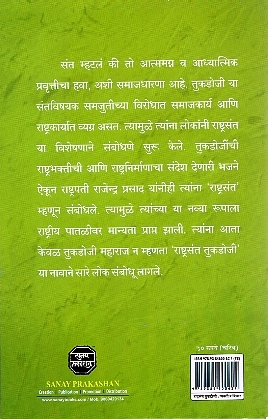 संत म्हटलं की तो आत्ममग्न व आध्यात्मिक
प्रवृत्तीचा हवा, अशी समाजधारणा आहे. तुकडोजी या
संतविषयक समजुतीच्या विरोधात समाजकार्य आणि
राष्ट्रकार्यात व्यग्र असत. त्यामुळे त्यांना लोकांनी राष्ट्रसंत
या विशेषणाने संबोधणे सुरू केले. तुकडोजींची
राष्ट्रभक्तीची आणि राष्ट्रनिर्माणाचा संदेश देणारी भजने
ऐकून राष्ट्रपती राजेन्द्र प्रसाद यांनीही त्यांना 'राष्ट्रसंत'
म्हणून संबोधले. त्यामुळे त्यांच्या या नव्या रूपाला
राष्ट्रीय पातळीवर मान्यता प्राप्त झाली. त्यांना आता
केवळ तुकडोजी महाराज न म्हणता 'राष्ट्रसंत तुकडोजी'
या नावाने सारे लोक संबोधू लागले.
SANAY PRAKASHAN
Creation Publication Promotion Distribution